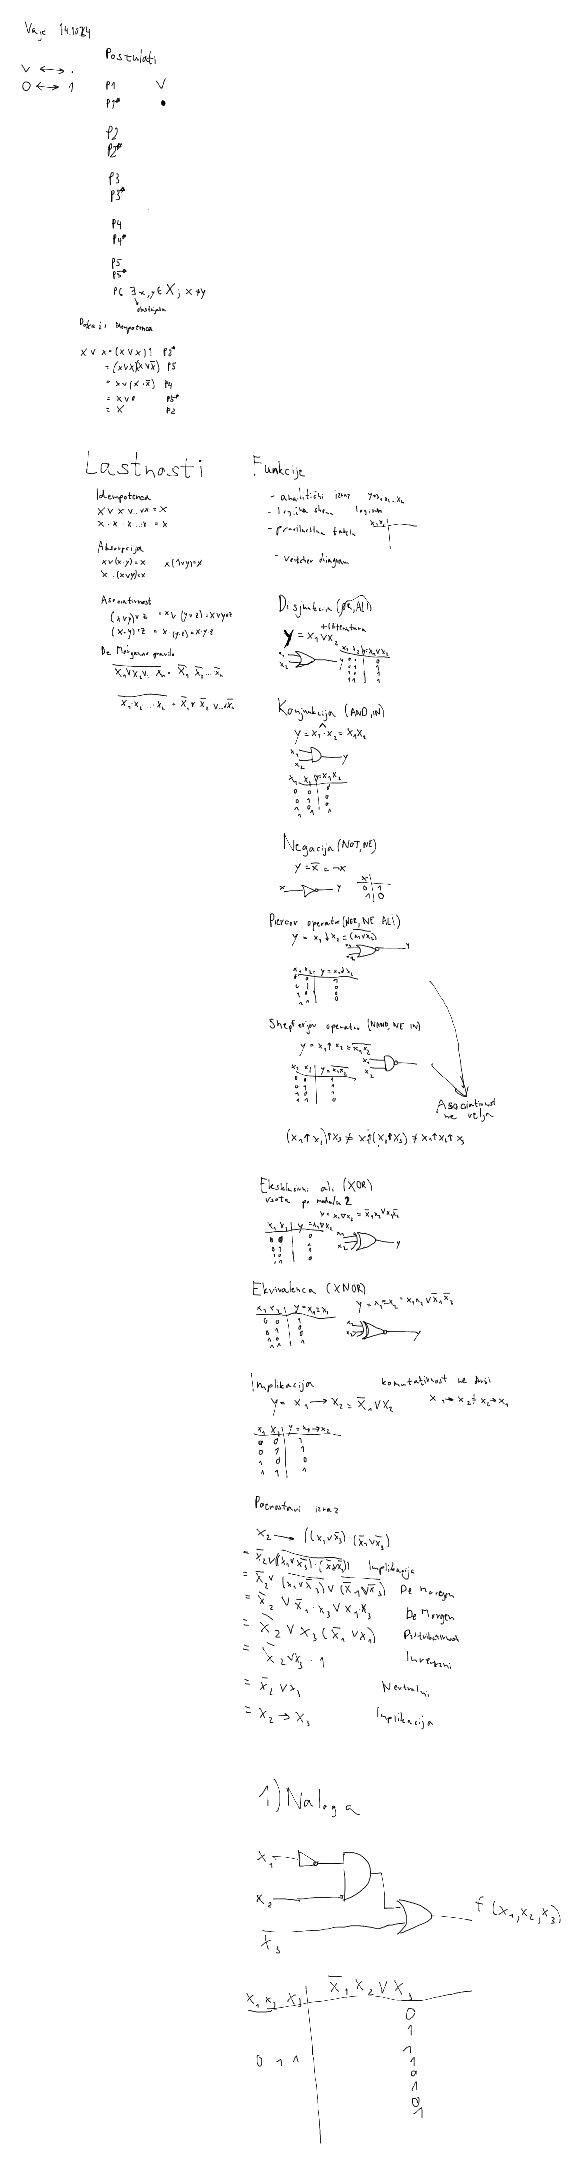 Vaje 14.10.24
Postulati
V ↔ .
0 ↔ 1
P1 V
P1* •
P2
P2*
P3
P3*
P4
P4*
P5
P5*
P6 ∃x,y∈X; x≠y
obstajata
Dokaži Idempotenca
x∨x=(x∨x)1 P2*
=(x∨x)(x∨x̅) P5
=x∨(x·x̅) P4
=x∨0 P5*
=x P2
Lastnosti
Idempotenca
x∨x∨...∨x=x
x·x·x...·x=x
Absorpcija
x∨(x·y)=x x(1∨y)=x
x·(x∨y)=x
Asociativnost
(x∨y)∨z =x∨(y∨z)=x∨y∨z
(x·y)·z = x·(y·z)=x·y·z
De Morganovo pravilo
Funkcije
- analitični izraz
- logična shema
- pravilnostna tabela
x₁x₂
- veitchev diagram
Disjunkcija (OR, ALI)
y=x₁∨x₂
x₁
x₂ y
x₁ x₂ y=x₁∨x₂
0 0 0
0 1 1
1 0 1
1 1 1
Konjunkcija (AND, IN)
y=x₁·x₂=x₁x₂
x₁
x₂ y
x₁ x₂ y=x₁x₂
0 0 0
0 1 0
1 0 0
1 1 1
Negacija (NOT, NE)
y=x̅=¬x
x y
x
0 1
1 0
Piercov operator (NOR, NE ALI)
y=x₁↓x₂=(x₁∨x₂)̅
y
x₁ x₂ y=x₁↓x₂
0 0 1
0 1 0
1 0 0
1 1 0
Shefferjov operator (NAND, NE IN)
x₁
x₂
0 0 1
0 1 1
1 0 1
1 1 0
Asociativnost
ne velja
(x₁↑x₂)↑x₃≠x₁↑(x₂↑x₃)≠x₁↑x₂↑x₃
Ekskluzivni ali (XOR)
vsota po modulu 2
y=x₁∇x₂=x̅₁x₂∨x₁x̅₂
x₁ x₂ y=x₁∇x₂
0 0 0
0 1 1
1 0 1
1 1 0
y
Ekvivalenca (XNOR)
y=x₁≡x₂=x₁x₂∨x̅₁x̅₂
0 0 1
0 1 0
1 0 0
1 1 1
y
Implikacija komutativnost ne drži
y=x₁→x₂=x̅₁∨x₂ x₁→x₂≠x₂→x₁
x₁ x₂ y=x₁→x₂
0 0 1
0 1 1
1 0 0
1 1 1
Poenostavi izraz
Implikacija
De Morgan
=x̅₂∨x̅₁·x₃∨x₁·x₃ De Morgan
=x̅₂∨x₃(x̅₁∨x₁) Distributivnost
=x̅₂∨x₃·1 Inverzni
=x̅₂∨x₃ Nevtralni
=x₂→x₃ Implikacija
1) Naloga
x₁
x₂
x₃
f(x₁,x₂,x₃)
x₁ x₂ x₃ x̅₁x₂∨x₃
0
1
1
0 1 1 1
0
1
0
1